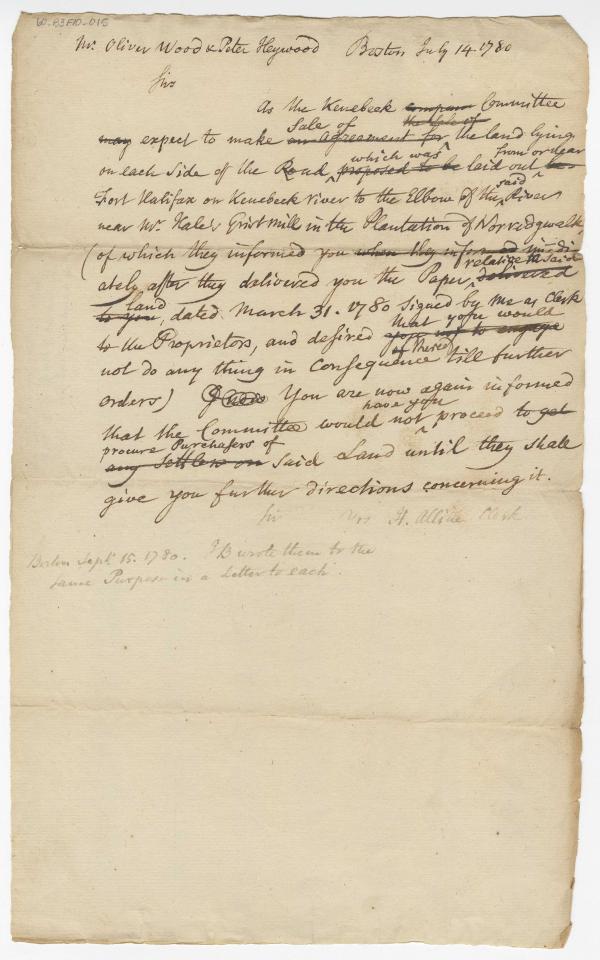 60-B3F10-015
Mr. Oliver Wood & Peter Heywood Boston July 14. 1780
Sirs
As the Kenebeck company Committee
the Sale of
may expect to make an agreement for the land lying
Sale of
on each Side of the Road, proposed to be laid out
which was from or near
Fort Halifax on Kenebeck river to the Elbow of the River
said
near Mr. Hale's Grist Mill in the Plantation of Norredgwalk,
(of which they informed you when they
relative to said
ately after they delivered you the Paper, delivered
land
to you, dated March 31. 1780 Signed by me as Clerk
that you would
to the Proprietors, and desired you not to engage
not do any thing in Consequence till further
orders) You are now again informed
have you
that the Committee would not proceed to get
procure Purchasers of
any Settlers on Said Land until they shall
give you further directions concerning it.
Sir Yrs H. Alline Clerk
Boston Sept. 15. 1780. wrote them to the
same Purpose in a Letter to each.